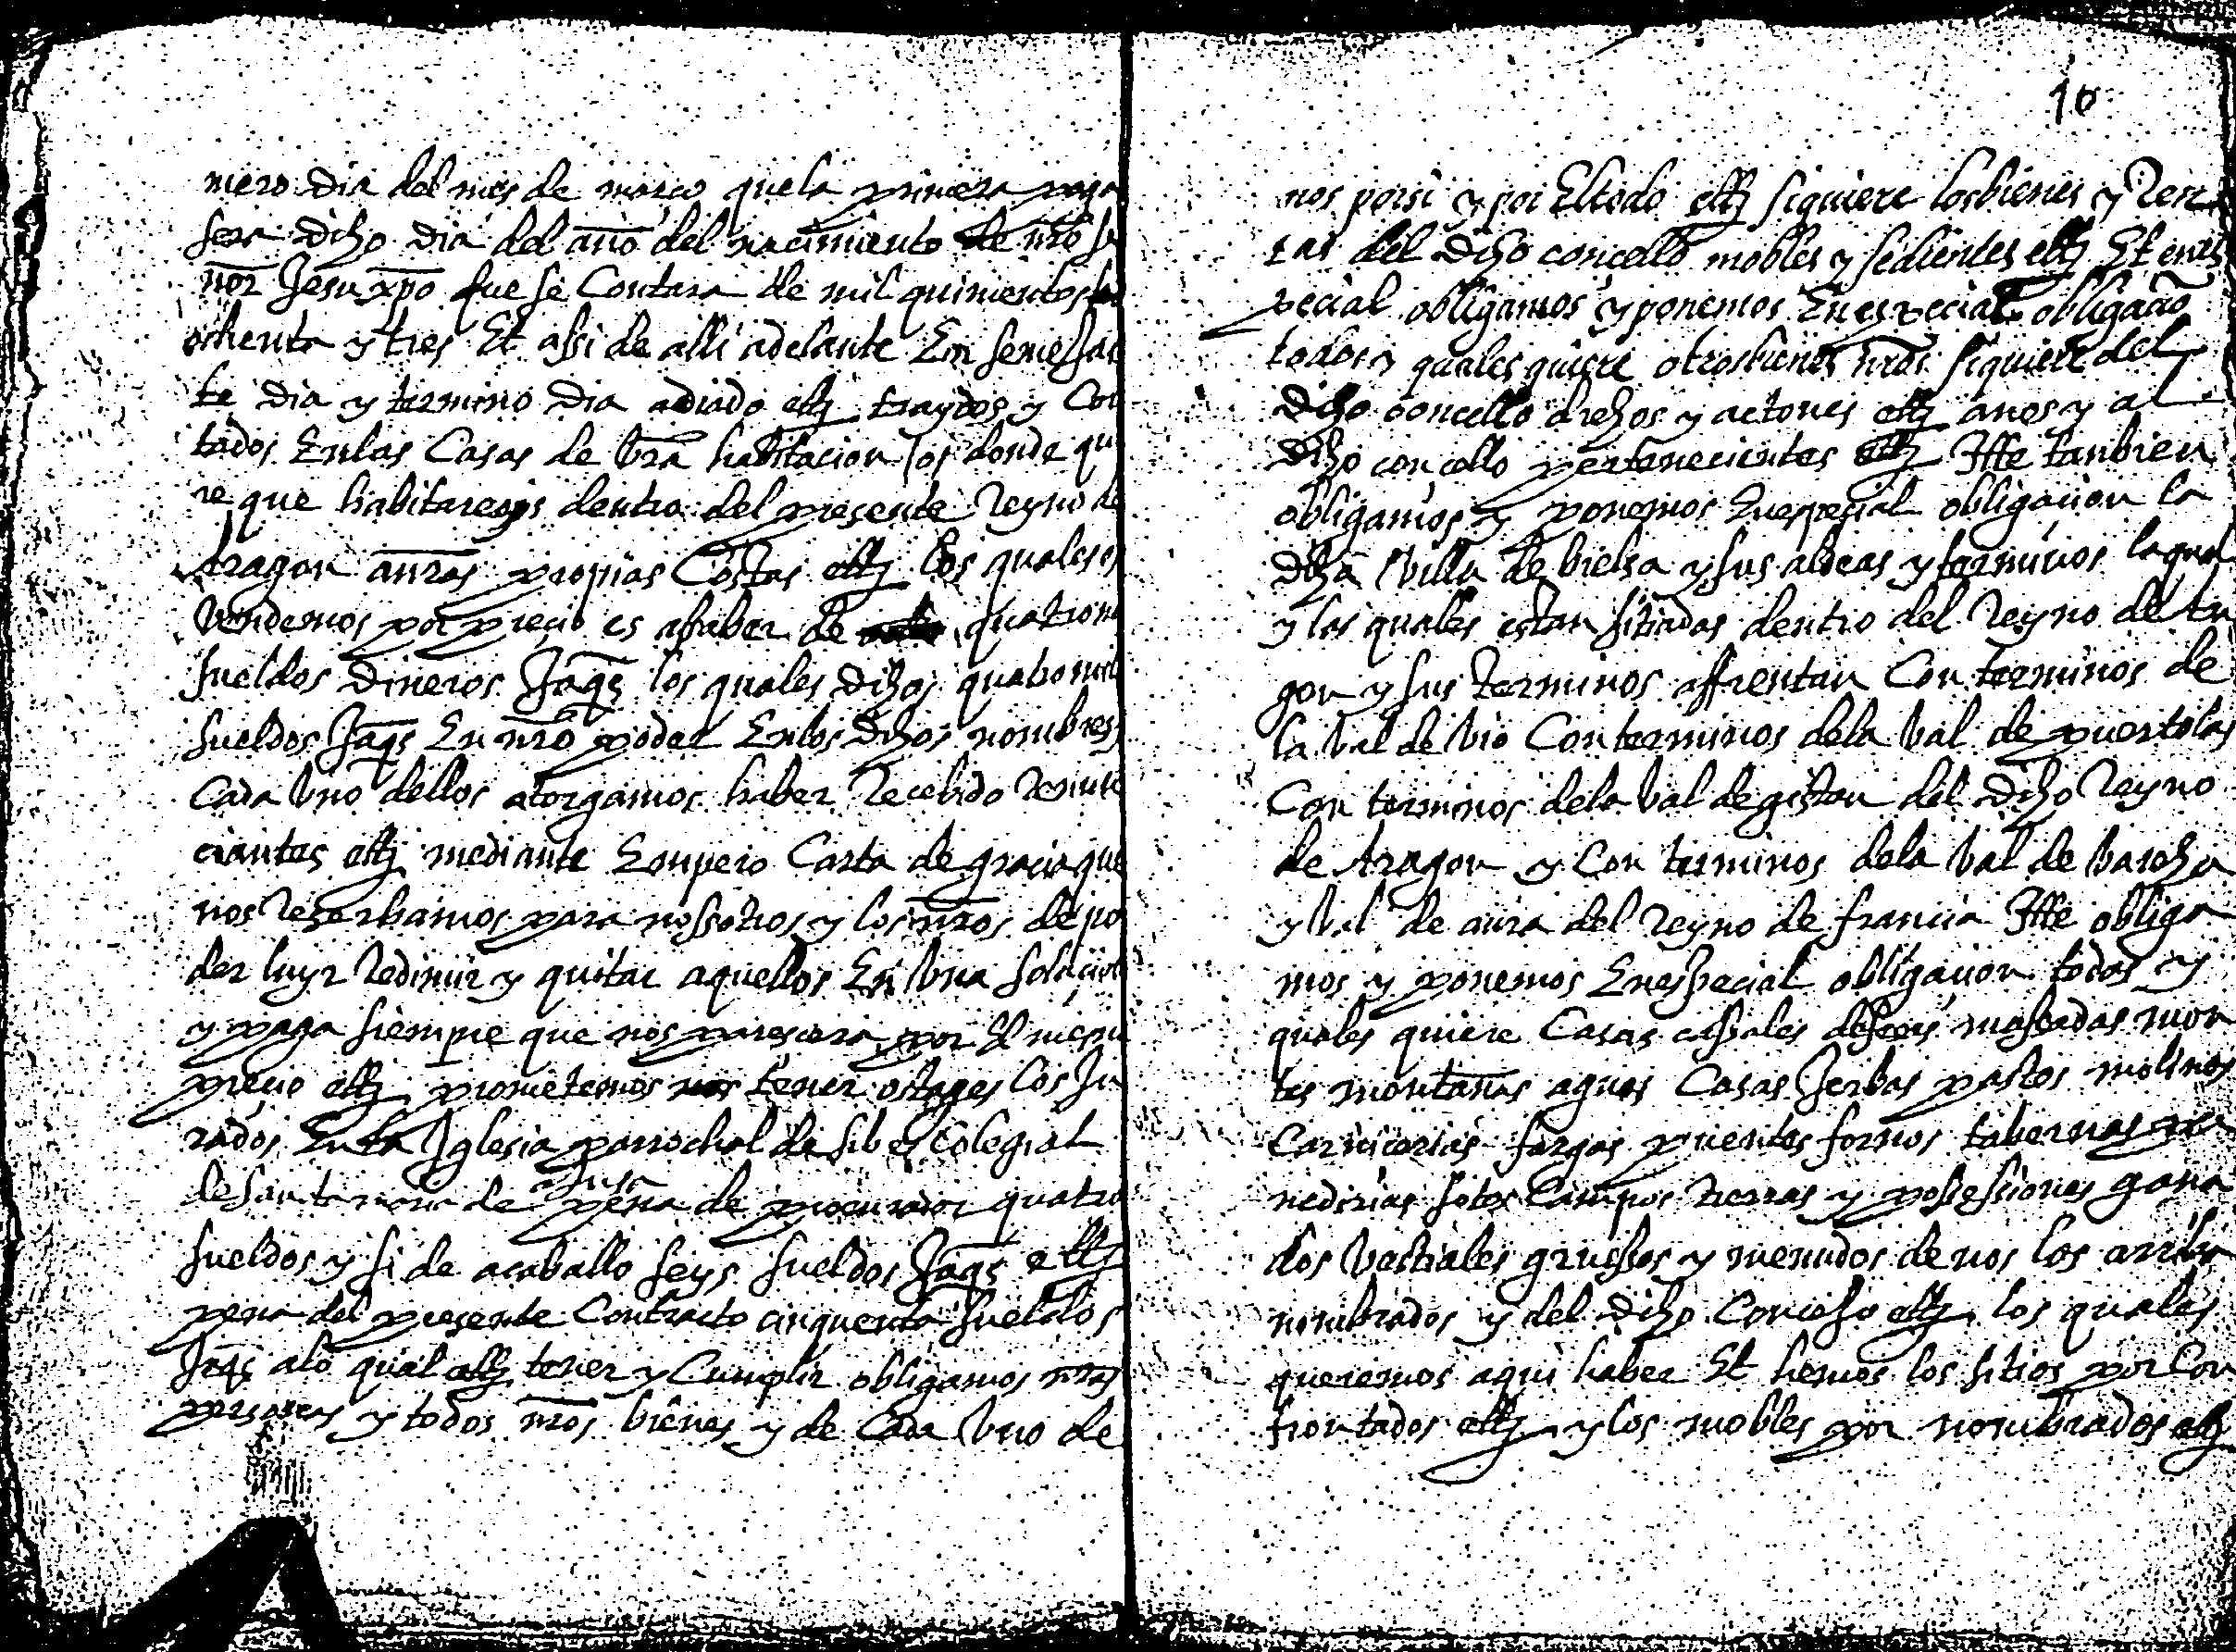 mero dia del mes de março que la primera paga
sera dicho dia del año del nacimiento de nro se
ñor Jesu xpo que se Contara de mil quinientos
ochenta y tres Et assi de alli adelante En semejan
te dia y termino dia adiado ettz traydos y Con
tados En las Casas de vra habitacion donde qui
re que habitareys dentro del presente Reyno de
Aragon a nras propias Costas ettz los quales os
vendemos por precio es asaber de quatro mil
sueldos dineros Jaqs los quales dichos quatro mil
sueldos Jaqs En nro poder En los dichos nombres
Cada vno dellos atorgamos haber Recebido Renun
ciantes ettz mediante Empero Carta de gracia que
nos Reserbamos para nossotros y los nros de po
der luyr Redimir y quitar aquellos En vna solucion
y paga siempre que nos parescera por El mesmo
precio ettz prometemos tener ostages los Ju
rados En la Iglesia parrochal de sib es Colegial
de santa maria de ainsa pena de procurador quatro
sueldos y si de acaballo seys sueldos Jaqs ettz
pena del presente Contracto cinquenta sueldos
Jaqs a lo qual ettz tener y Cumplir obligamos nras
personas y todos nros bienes y de Cada vno de
10
nos por si y por El todo ettz siquiere los bienes y Ren
tas del dicho concello mobles y sedientes ettz Et en es
pecial obligamos y ponemos En especial obligacio
todos y quales quiere otros bienes nros siquiere del
dicho concello drechos y actiones ettz a nos y al
dicho concello pertenecientes ettz Itte tanbien
obligamos y ponemos En especial obligacion la
dicha villa de bielsa y sus aldeas y terminos la qual
y las quales estan sitiadas dentro del Reyno de Ara
gon y sus terminos affrentan Con terminos de
la val de vio Con terminos de la val de puertolas
Con terminos de la val de gistau del dicho Reyno
de Aragon y Con terminos de la val de varecha
y val de aura del Reyno de francia Itte obliga
mos y ponemos En especial obligacion todos y
quales quiere Casas casales mon
tes montañas aguas Casas Jerbas pastos molinos
Carnicerias fargas puentes fornos tabernas pa
nederias sotos Campos tierras y possessiones gana
dos vestiales gruessos y menudos de nos los arriba
nombrados y del dicho Concejo ettz los quales
queremos aqui haber Et hemos los sitios por Con
frontados ettz y los mobles por nombrados ettz